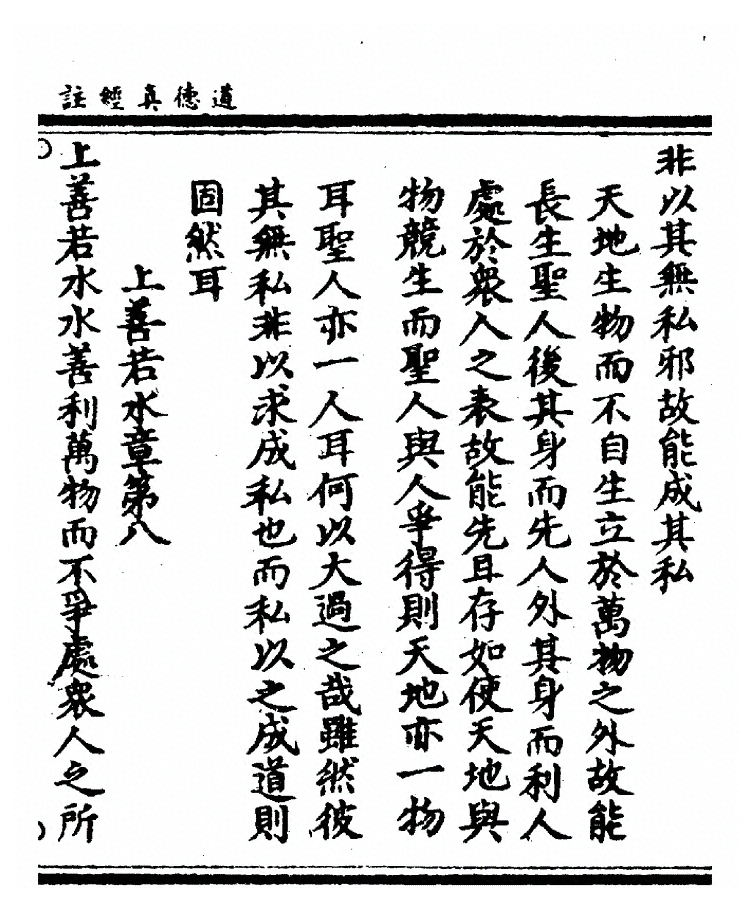 道德真經註
非以其無私邪故能成其私
天地生物而不自生立於萬物之外故能
長生聖人後其身而先人外其身而利人
處於衆人之表故能先且存如使天地與
物競生而聖人與人爭得則天地亦一物
耳聖人亦一人耳何以大過之哉雖然彼
其無私非以求成私也而私以之成道則
固然耳
上善若水章第八
上善若水水善利萬物而不爭處衆人之所